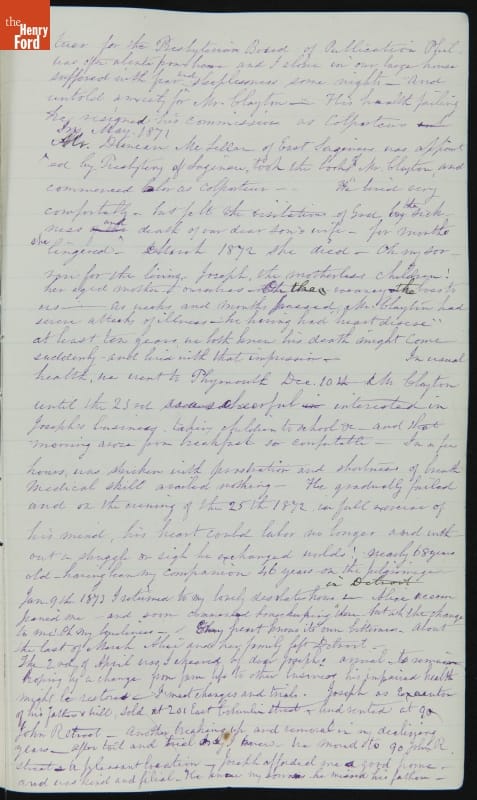 the
Henry
Ford
for the Presbyterian Board of Publication Phil
was often alone from home and I alone in our large house
suffered with fear and sleeplessness some nights — And
untold anxiety for Mr. Clayton — His health failing
he resigned his commission as Colporteur
In May. 1871
Mr. Duncan McLellan of East Saginaw was appoint
ed by Presbytery of Saginaw, took the books of Mr. Clayton, and
commenced labor as colporteur — We lived very
comfortably — but felt the visitation of God, by the sick-
ness and death of our dear son's wife — for months
she lingered — March 1872 she died — Oh my sor-
row for the living. Joseph, the motherless children!
her aged mother & ourselves — Oh the
us — As weeks and months passed, Mr. Clayton had
severe attacks of illness — he having had "heart disease"
at least ten years, we both knew his death might come
suddenly — and live with that impression — In usual
health, we went to Plymouth Dec. 10th Mr Clayton
until the 23rd was cheerful interested in
Joseph's business — taking children to school &c — and that
morning arose from breakfast so comfortable — In a few
hours, was stricken with prostration and shortness of breath
Medical skill availed nothing — He gradually failed
and on the evening of the 25th 1872 in full exercise of
his mind, his heart could labor no longer and with
out a struggle or sigh he exchanged worlds! nearly 68 years
old — having been my companion 46 years on the pilgrimage
in Detroit
Jan. 9th 1873 I returned to my lonely desolate house — Alice
joined me — and soon commenced housekeeping there but oh the change
to me. Oh my loneliness — my heart knows its own bitterness. About
the last of March Alice and her family left Detroit.
The 2nd of April was I cheered by dear Joseph's arrival to remain
hoping by a change from to other business his impaired health
might be restored — I meet changes and trial. Joseph as Executor
of his father's will, sold at 201 East Columbia street & and rented at 90
John R street — Another breaking up and removal in my declining
years — After toil and trial we moved to 90 John R.
street — A pleasant location — Joseph afforded me a good home —
and was kind and filial — He knew my sorrow he missed his father —